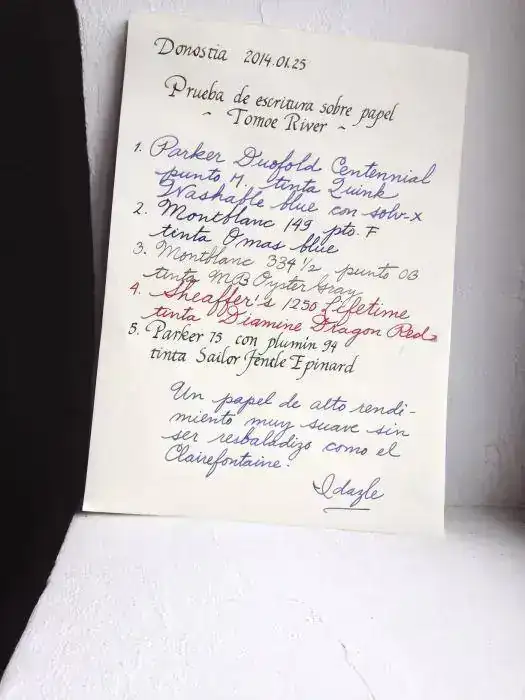 Donostia 2014.01.25
Prueba de escritura sobre papel
~ Tomoe River ~
1. Parker Duofold Centennial
punto M, tinta Quink
Washable blue con solv-x
2. Montblanc 149 pto. F
tinta Omas blue
3. Montblanc 334 1/2 punto OB
tinta MB Oyster Gray
4. Sheaffer's 1250 Lifetime
tinta Diamine Dragon Red
5. Parker 75 con plumín 94
tinta Sailor Jentle Epinard
Un papel de alto rendi-
miento muy suave sin
ser resbaladizo como el
Clairefontaine.
Idazle